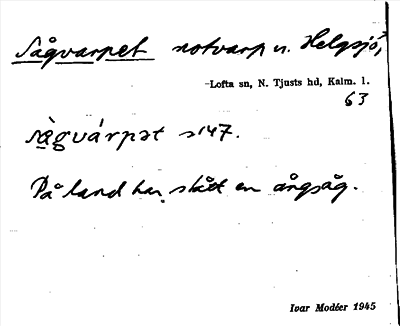 Sågvarpet notvarp n. Helgsjö,
Lofta sn, N. Tjusts hd, Kalm. l.
63
sàgvárpət s147.
På land har stått en ångsåg.
Ivar Modéer 1945